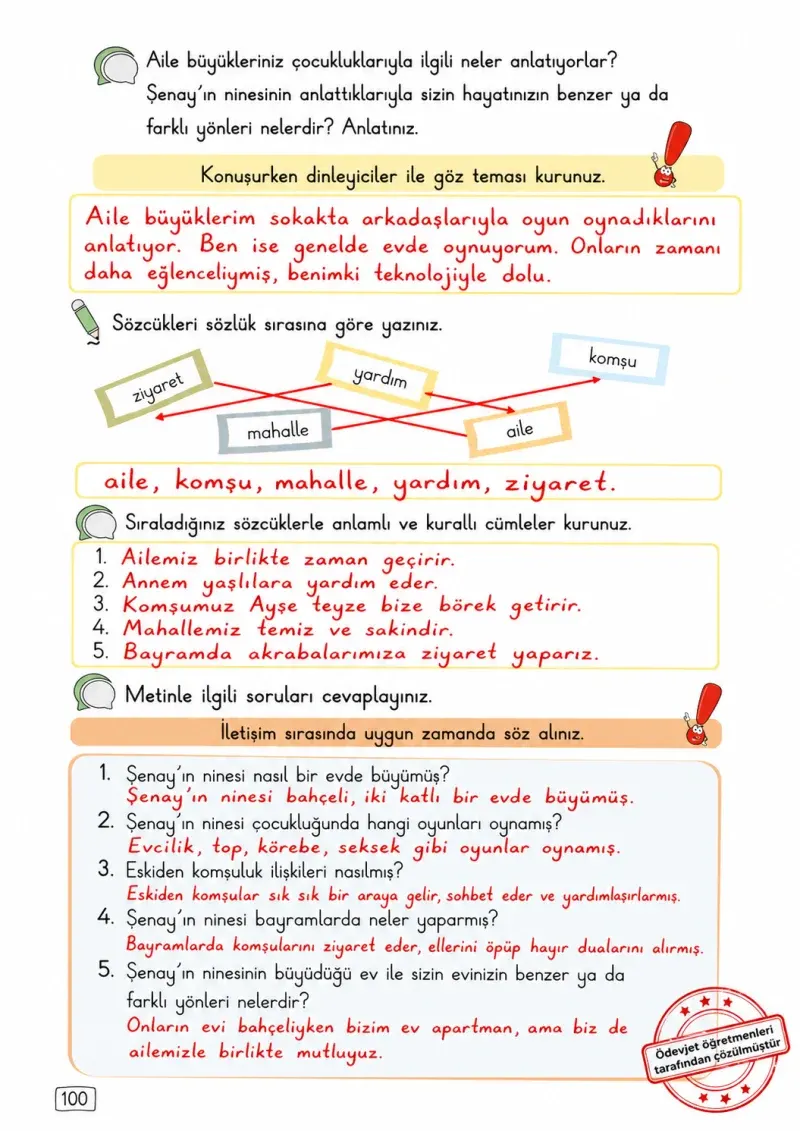 Aile büyükleriniz çocukluklarıyla ilgili neler anlatıyorlar?
Şenay'ın ninesinin anlattıklarıyla sizin hayatınızın benzer ya da
farklı yönleri nelerdir? Anlatınız.
Konuşurken dinleyiciler ile göz teması kurunuz.
Aile büyüklerim sokakta arkadaşlarıyla oyun oynadıklarını
anlatıyor. Ben ise genelde evde oynuyorum. Onların zamanı
daha eğlenceliymiş, benimki teknolojiyle dolu.
Sözcükleri sözlük sırasına göre yazınız.
ziyaret
yardım
komşu
mahalle
aile
aile, komşu, mahalle, yardım, ziyaret.
Sıraladığınız sözcüklerle anlamlı ve kurallı cümleler kurunuz.
1. Ailemiz birlikte zaman geçirir.
2. Annem yaşlılara yardım eder.
3. Komşumuz Ayşe teyze bize börek getirir.
4. Mahallemiz temiz ve sakindir.
5. Bayramda akrabalarımıza ziyaret yaparız.
Metinle ilgili soruları cevaplayınız.
İletişim sırasında uygun zamanda söz alınız.
1. Şenay'ın ninesi nasıl bir evde büyümüş?
Şenay'ın ninesi bahçeli, iki katlı bir evde büyümüş.
2. Şenay'ın ninesi çocukluğunda hangi oyunları oynamış?
Evcilik, top, körebe, seksek gibi oyunlar oynamış.
3. Eskiden komşuluk ilişkileri nasılmış?
Eskiden komşular sık sık bir araya gelir, sohbet eder ve yardımlaşırlarmış.
4. Şenay'ın ninesi bayramlarda neler yaparmış?
Bayramlarda komşularını ziyaret eder, ellerini öpüp hayır dualarını alırmış.
5. Şenay'ın ninesinin büyüdüğü ev ile sizin evinizin benzer ya da
farklı yönleri nelerdir?
Onların evi bahçeliyken bizim ev apartman, ama biz de
ailemizle birlikte mutluyuz.
Ödevjet öğretmenleri
tarafından çözülmüştür
100